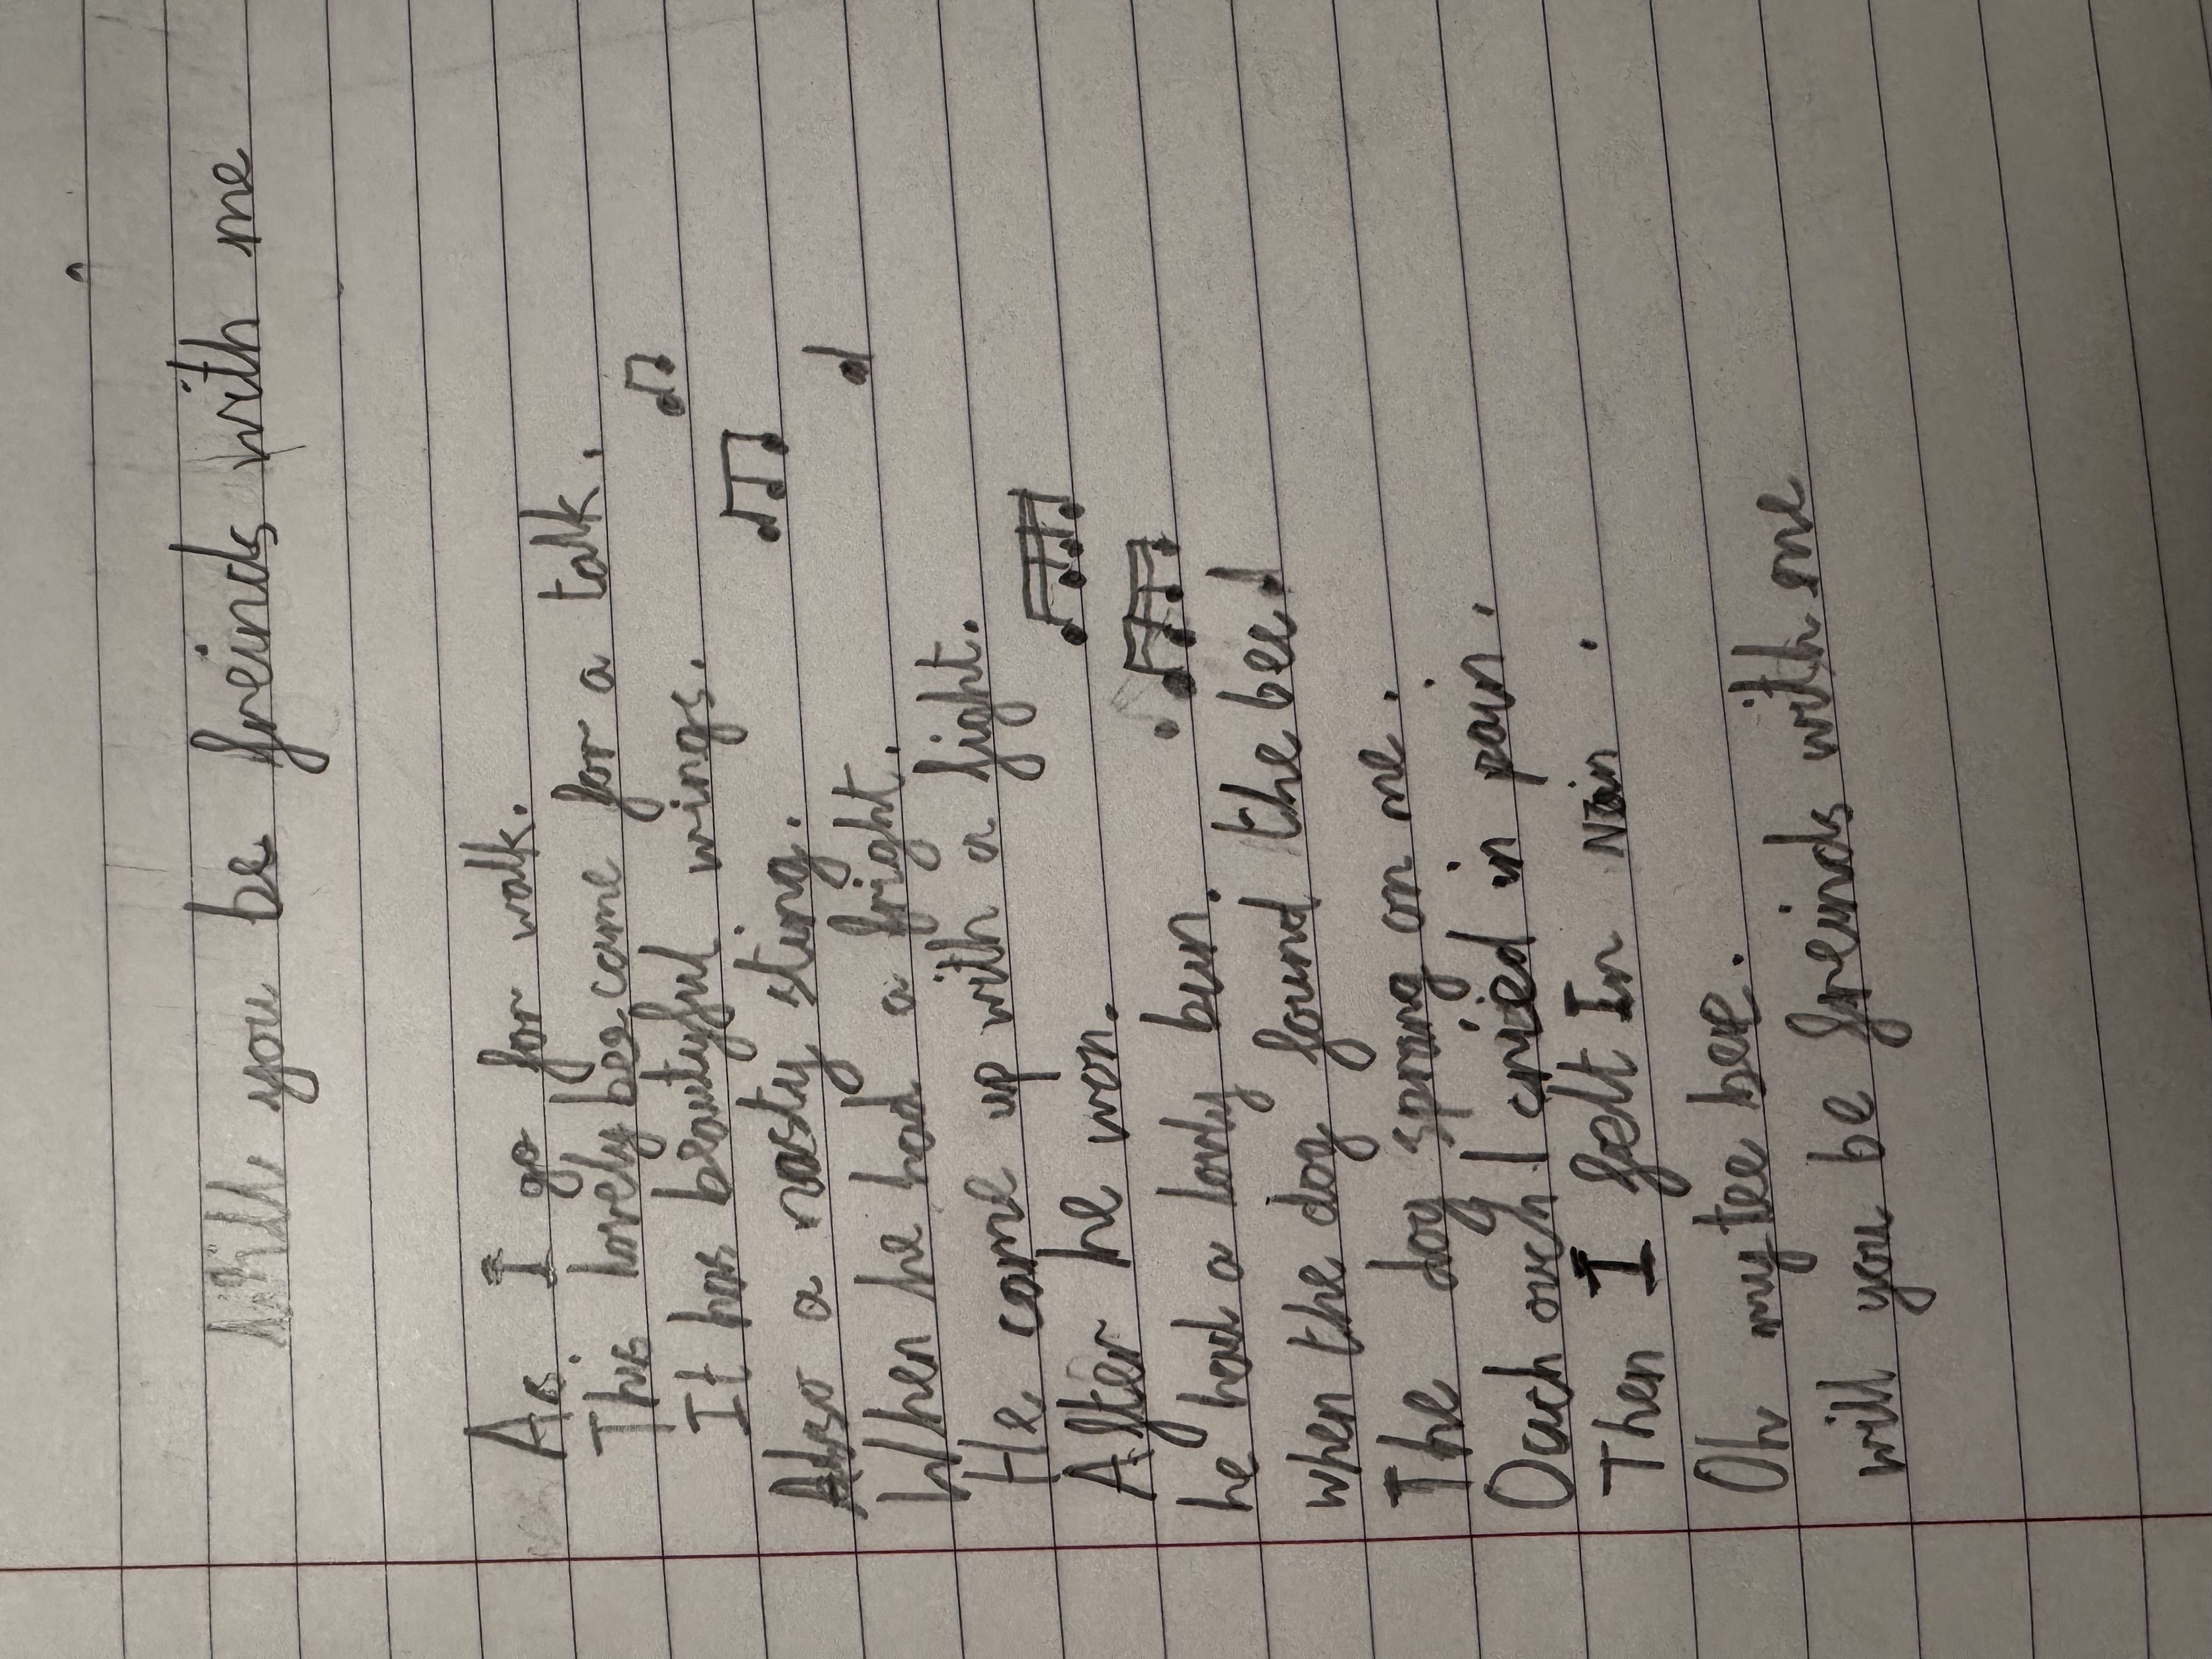 will you be freinds with me
As I go for walk.
This lovely bee came for a talk.
It has beautyful wings.
Also a nasty sting.
When he had a fright.
He came up with a fight.
After he won.
he had a lovly bun.
when the dog found the bee
The dog sprang on me.
Ouch ouch I cried in pain.
Then I felt In Nain.
Oh my tee hee.
will you be freinds with me